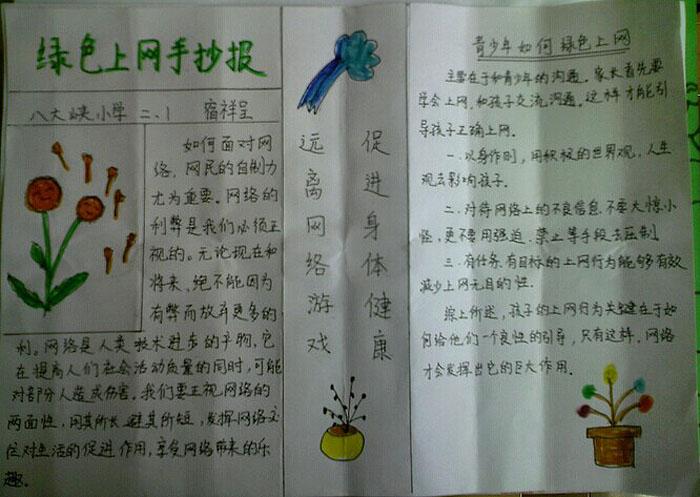 绿色上网手抄报
八大峡小学 二、1 宿祥呈
如何面对网
络，网民的自制力
尤为重要。网络的
利弊是我们必须正
视的。无论现在和
将来，绝不能因为
有弊而放弃更多的
利。网络是人类技术进步的产物，它
在提高人们社会活动质量的同时，可能
对部分人造成伤害。我们要正视网络的
两面性，用其所长，避其所短，发挥网络文
位对生活的促进作用，享受网络带来的乐
趣。
远离网络游戏
促进身体健康
青少年如何绿色上网
主要在于和青少年的沟通。家长首先要
学会上网，和孩子交流，沟通。这样才能引
导孩子正确上网。
一.以身作则，用积极的世界观，人生
观去影响孩子。
二.对待网络上的不良信息.不要大惊小
怪，更不要用强迫.禁止等手段去压制
三.有任务.有目标的上网行为能够有效
减少上网无目的性.
综上所述，孩子的上网行为关键在于如
何给他们一个良性的引导，只有这样.网络
才会发挥出它的巨大作用.